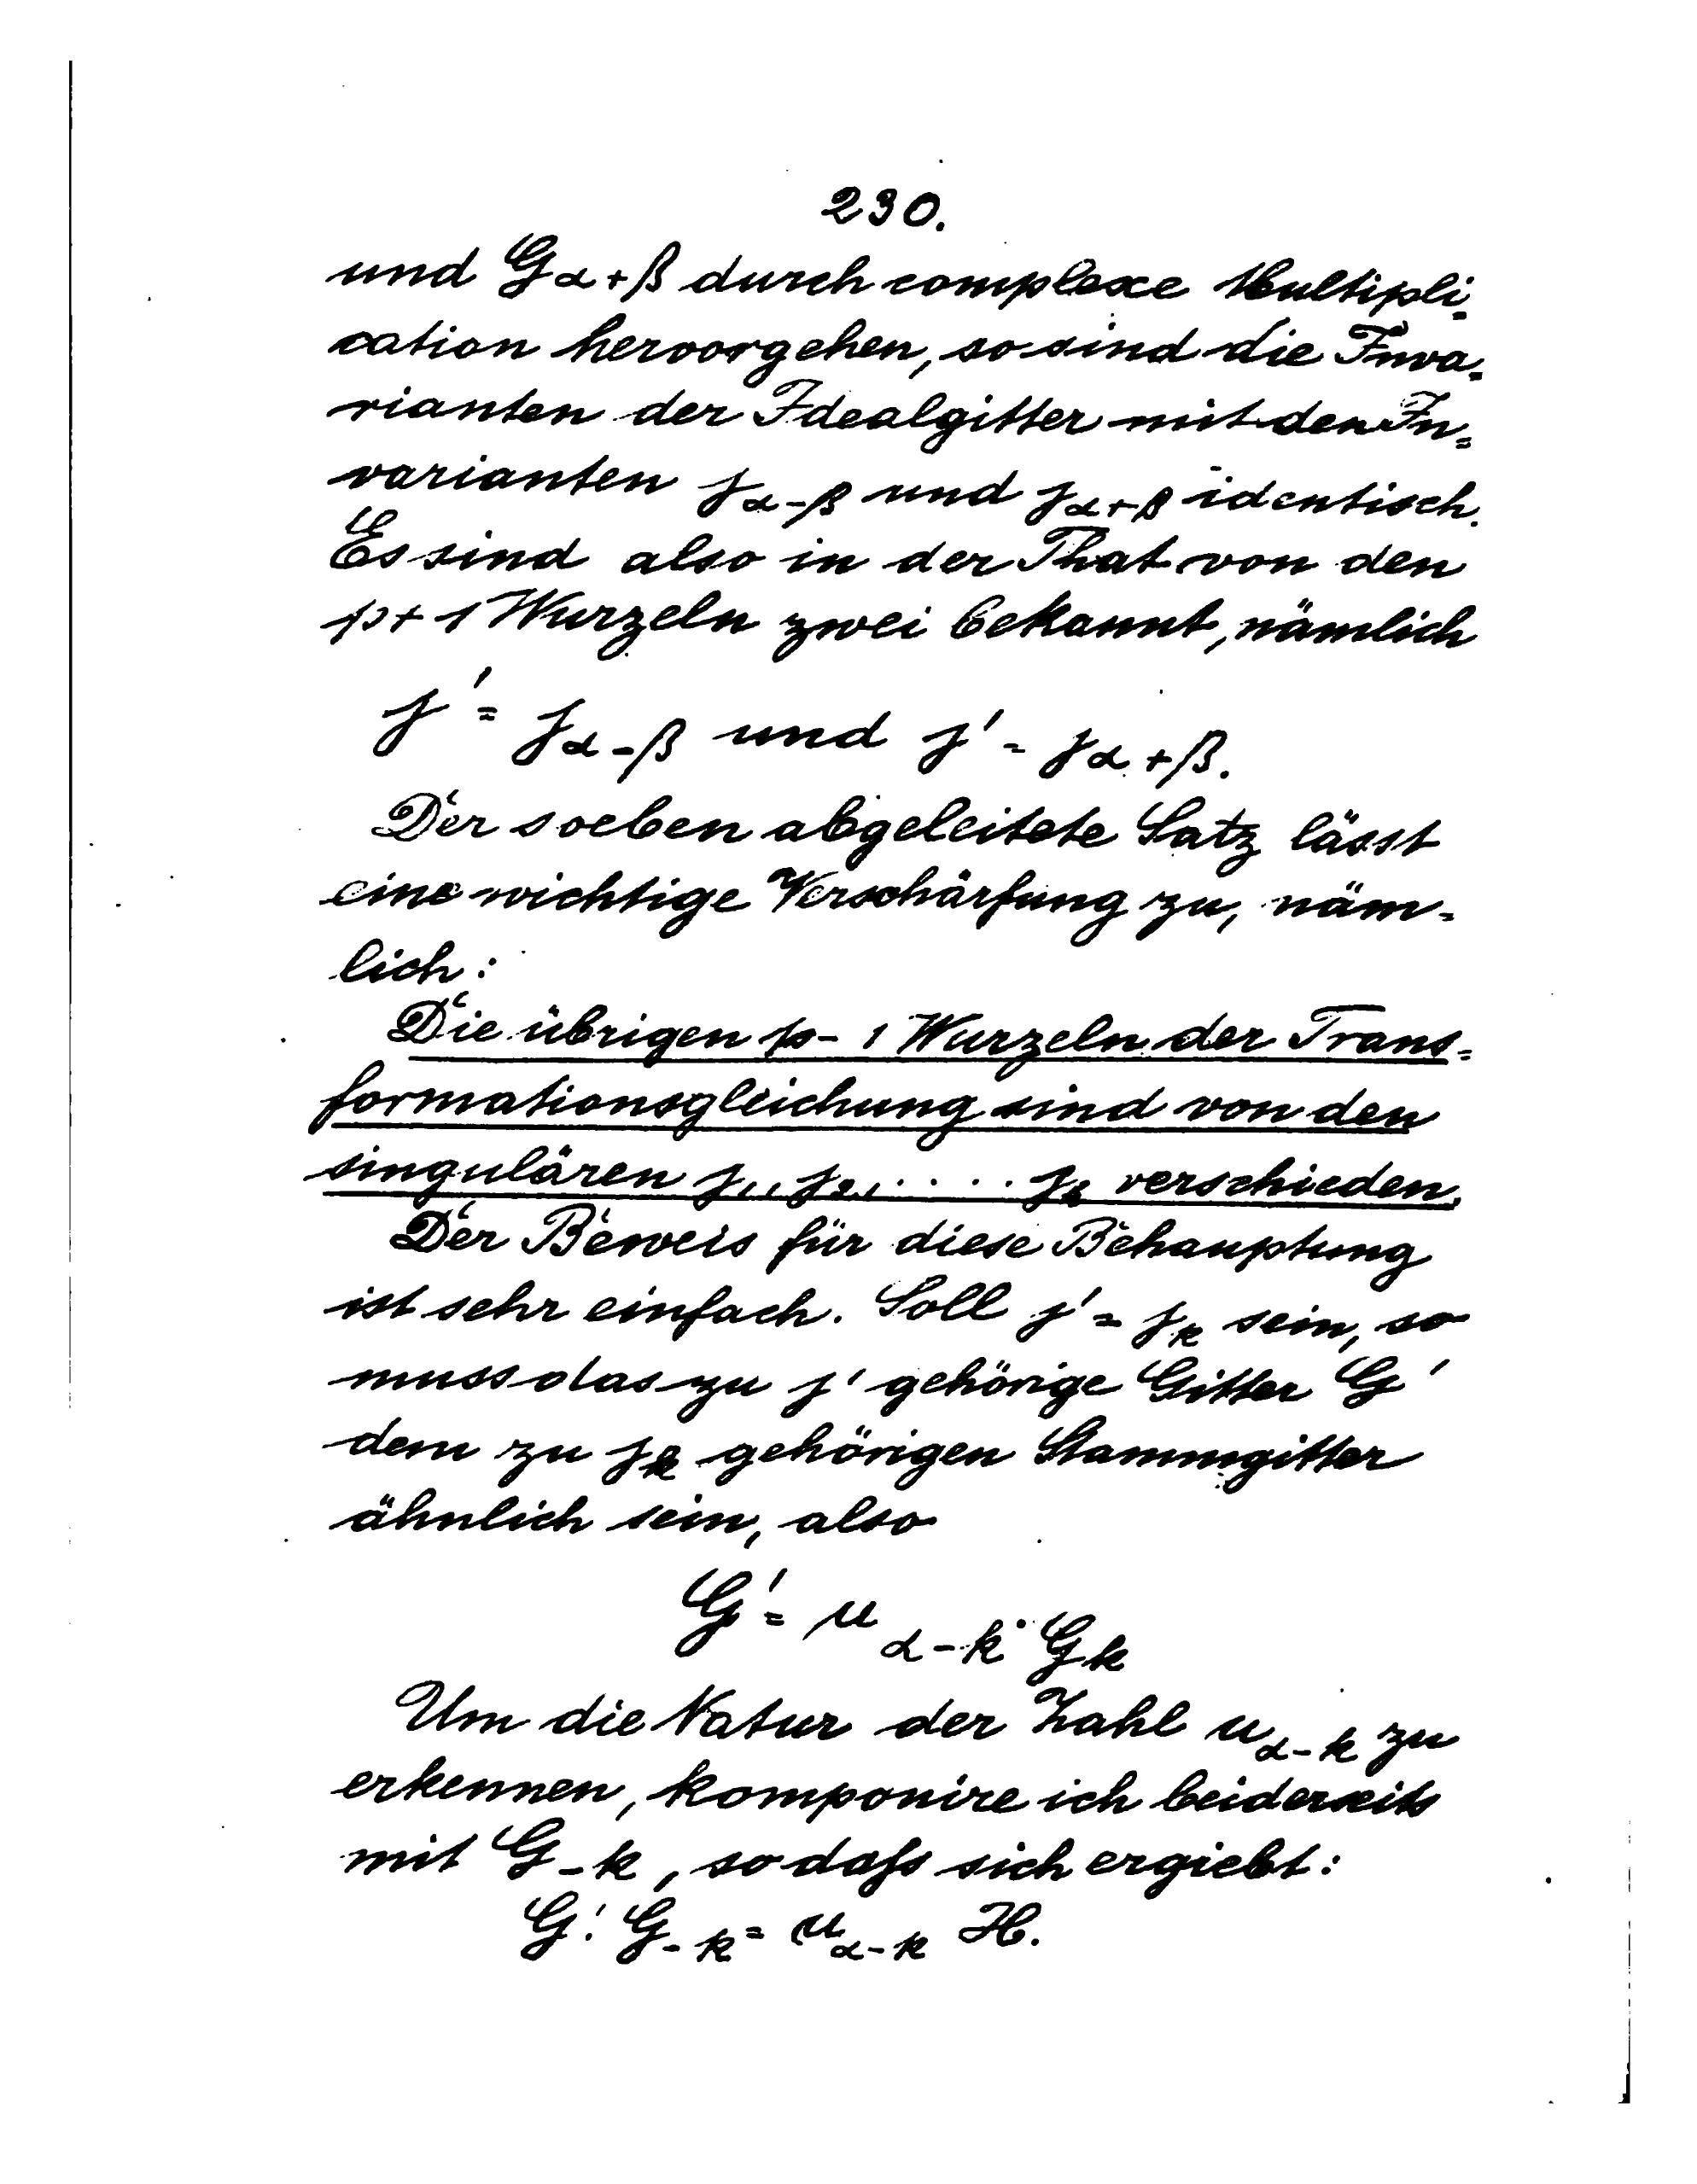 230.
und G_{α+β} durch complexe Multipli-
cation hervorgehen, so sind die Inva-
rianten der Idealgitter mit den In-
varianten j_{α-β} und j_{α+β} identisch.
Es sind also in der That von den
p+1 Wurzeln zwei bekannt, nämlich
j' = j_{α-β} und j' = j_{α+β}.
Der soeben abgeleitete Satz lässt
eine wichtige Verschärfung zu, näm-
lich:
Die übrigen p-1 Wurzeln der Trans-
formationsgleichung sind von den
singulären j_1, j_2, ..... j_h verschieden.
Der Beweis für diese Behauptung
ist sehr einfach. Soll j' = j_k sein, so
muss das zu j' gehörige Gitter G'
dem zu j_k gehörigen Stammgitter
ähnlich sein, also
G' = μ_{α-k} · G_k
Um die Natur der Zahl μ_{α-k} zu
erkennen, komponire ich beiderseits
mit G_{-k}, so daß sich ergiebt:
G'. G_{-k} = μ_{α-k} H.